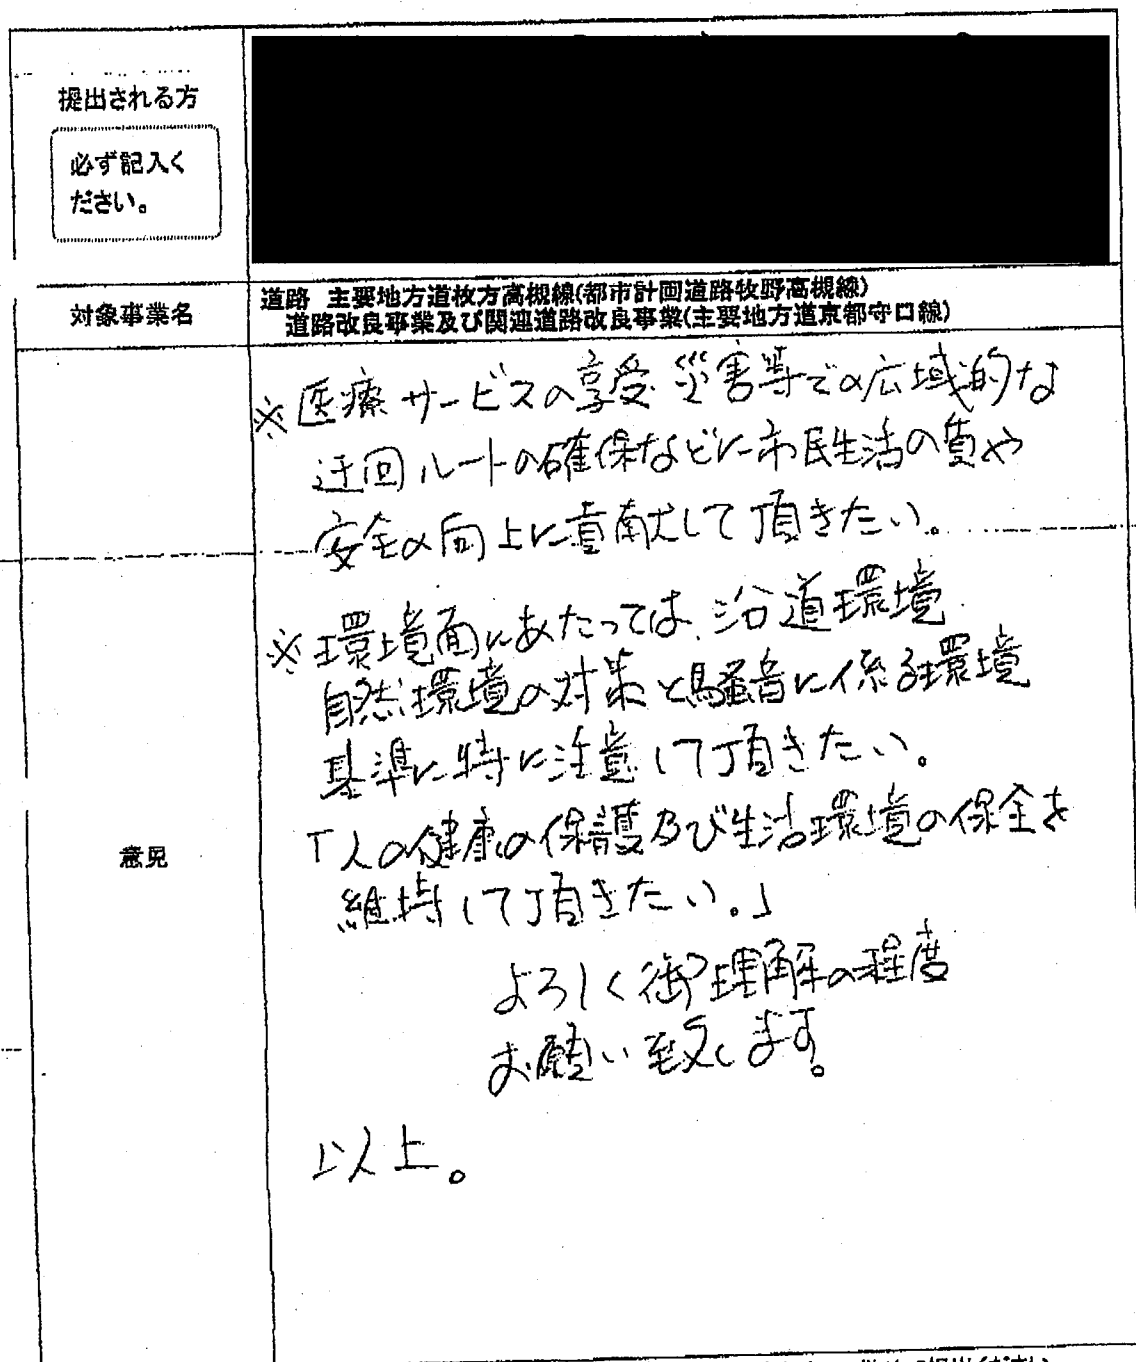 提出される方
必ず記入く
ださい。
対象事業名
道路 主要地方道枚方高槻線(都市計画道路牧野高槻線)
道路改良事業及び関連道路改良事業(主要地方道京都守口線)
意見
※医療サービスの享受、災害等での広域的な
迂回ルートの確保などに市民生活の質や
安全の向上に貢献して頂きたい。
※環境面にあたっては、沿道環境
自然環境の対策と騒音に係る環境
基準に特に注意して頂きたい。
「人の健康の保護及び生活環境の保全を
維持して頂きたい。」
よろしく御理解の程度
お願い致します。
以上。